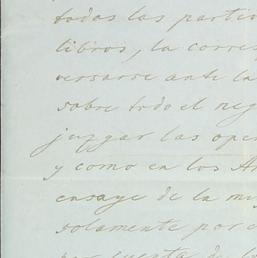 todas las partid
libros, la corres
versarse ante la
sobre todo el neg
juzgar las ope
y como en los A
ensaye de la m
solamente por c
por cuenta de l